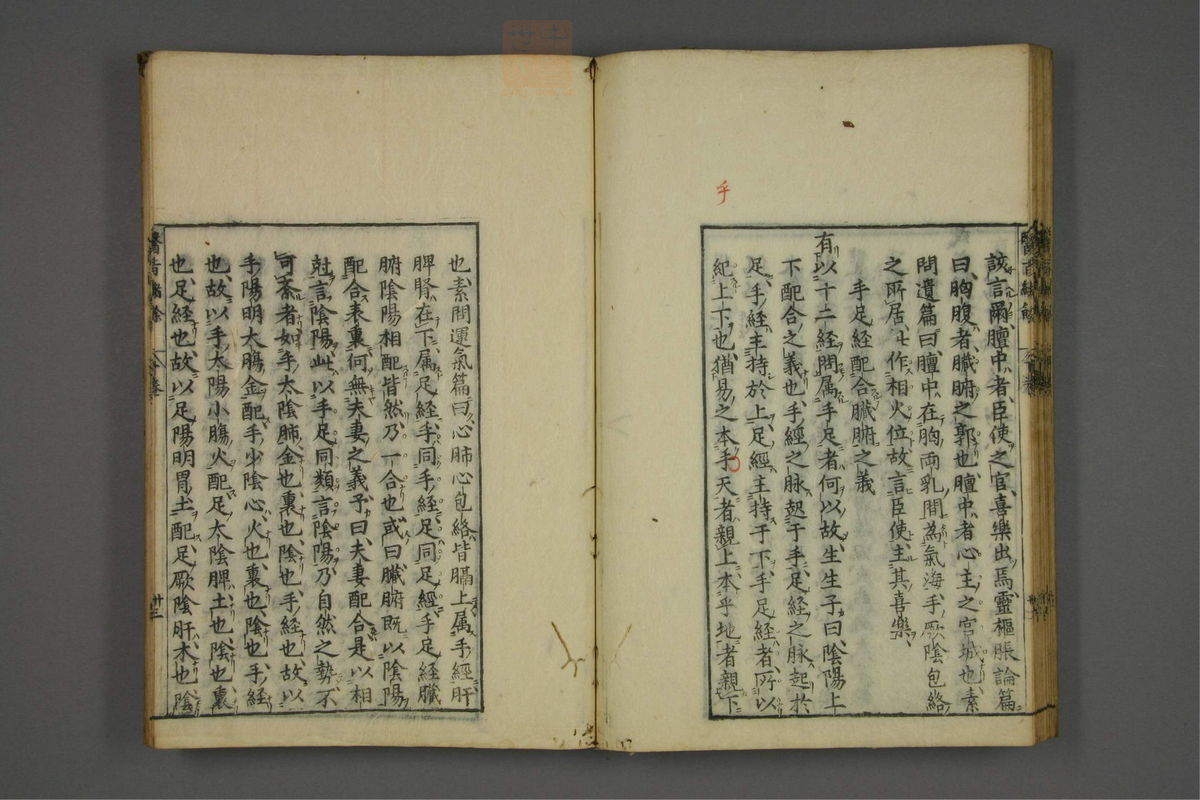 該言爾膻中者臣使之官喜樂出焉靈樞脹論篇
曰胸腹者臟腑之郭也膻中者心主之宮城也素
問遺篇曰膻中在胸両乳間為氣海手厥陰包絡
之所居七作相火位故言臣使主其喜樂
手足経配合臟腑之義
有以十二経問属手足者何以故生生子曰陰陽上
下配合之義也手経之脉起于手足経之脉起於
足手経主持於上足経主持于下手足経者所以
紀上下也猶易之本手天者親上本乎地者親下
乎
也素問運氣篇曰心肺心包絡皆膈上属手経肝
脾腎在下属足経手同手経足同足経手足経臟
腑陰陽相配皆然乃一合也或曰臟腑既以陰陽
配合表裏何無夫妻之義予曰夫妻配合是以相
尅言陰陽此以手足同類言陰陽乃自然之勢不
可紊者如手太陰肺金也裏也陰也手経也故以
手陽明大膓金配手少陰心火也裏也陰也手経
也故以手太陽小膓火配足太陰脾土也陰也裏
也足経也故以足陽明胃土配足厥陰肝木也陰